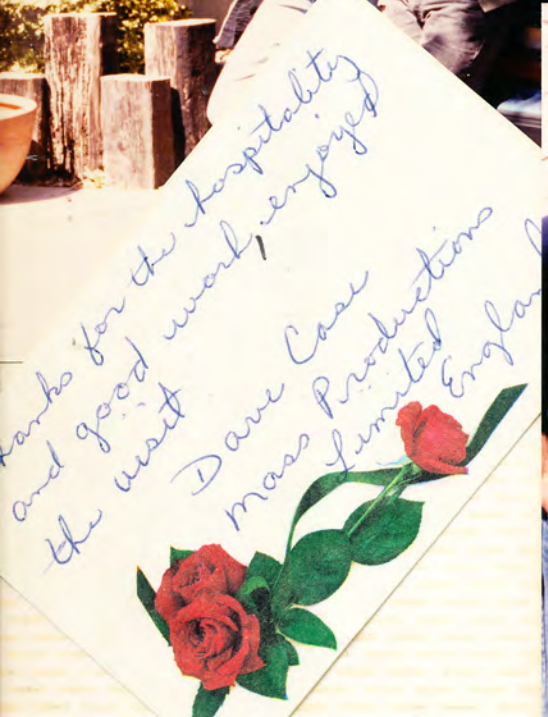 hanks for the hospitality
and good work, enjoyed
the visit
Dave Case
Mass Productions
Limited
England